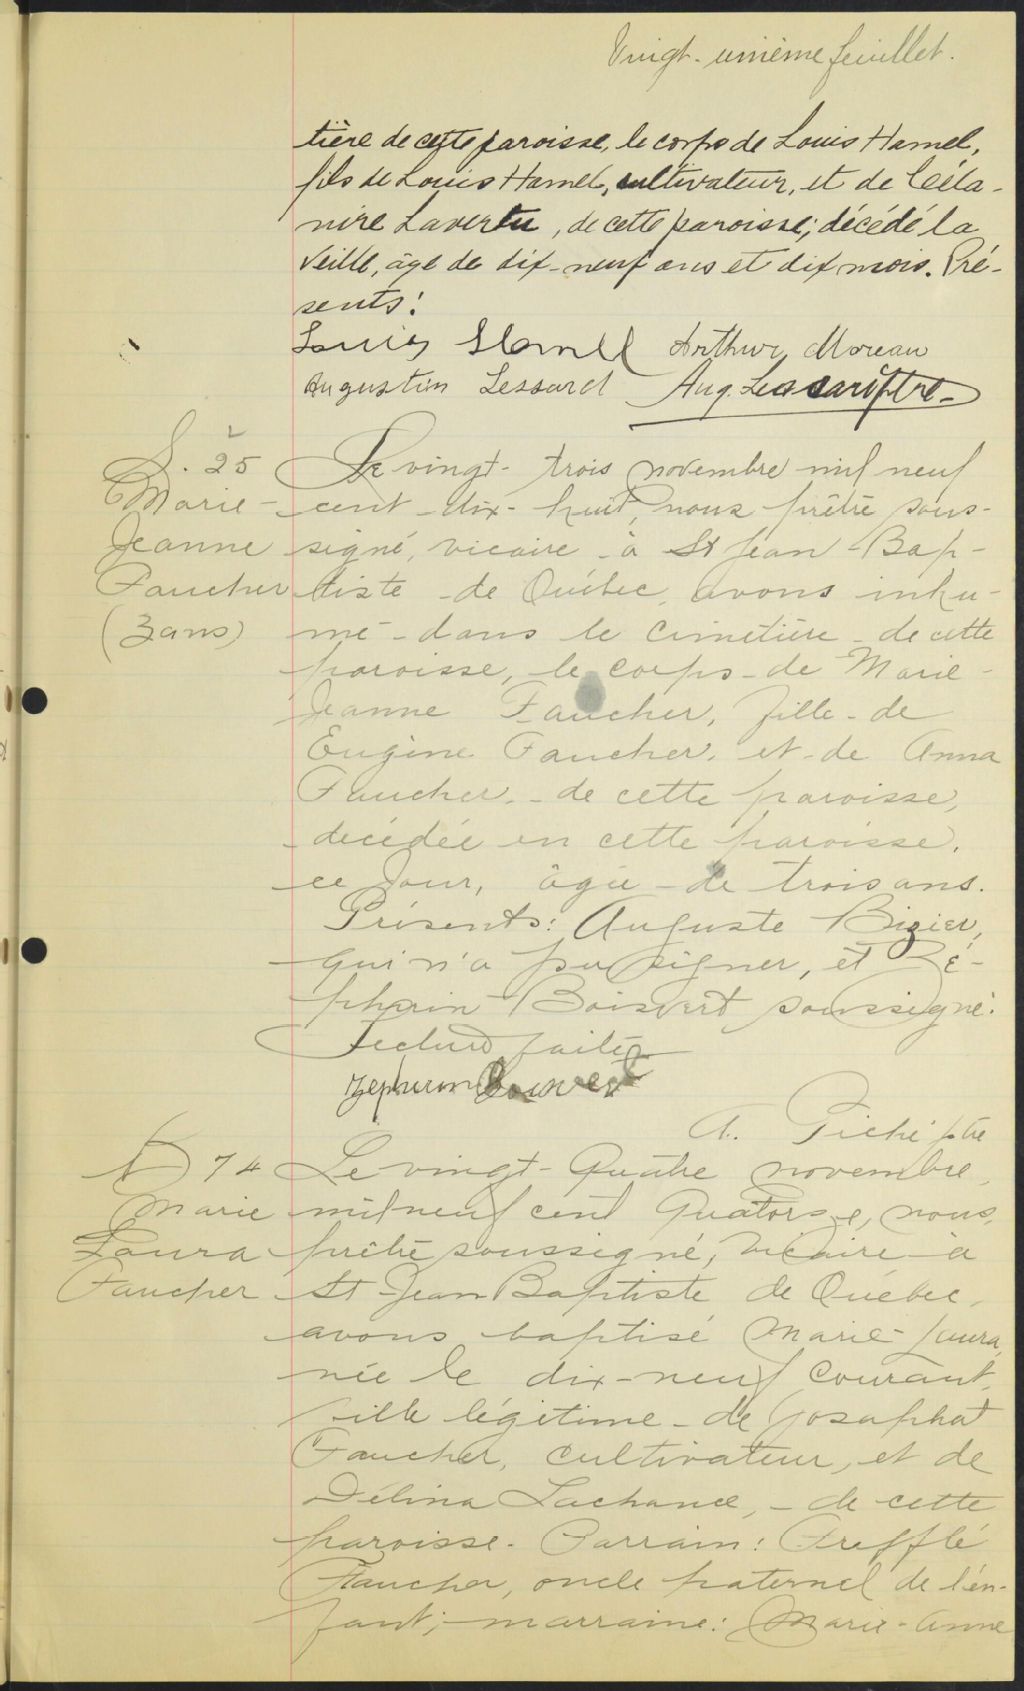 Vingt-unième feuillet.
tière de cette paroisse, le corps de Louis Hamel,
fils de Louis Hamel, cultivateur, et de Céla-
nire Lavertu, de cette paroisse; décédé la
veille, âgé de dix-neuf ans et dix mois. Pré-
sents:
Louis Hamel Arthur Moreau
Augustin Lessard Aug. Lessard ptre
S. 25
Marie-
Jeanne
Faucher
(3 ans)
Le vingt-trois novembre mil neuf
cent-dix-huit, nous prêtre sous-
signé, vicaire à St Jean-Bap-
tiste de Québec, avons inhu-
mé dans le cimetière de cette
paroisse, le corps de Marie-
Jeanne Faucher, fille de
Eugène Faucher, et de Anna
Faucher, de cette paroisse,
décédée en cette paroisse,
ce jour, âgée de trois ans.
Présents: Auguste Bizier,
qui n'a pu signer, et Zé-
phirin Boisvert soussigné.
Lecture faite
Zephirin Boisvert
A. Piché ptre
B 74
Marie
Laura
Faucher
Le vingt-quatre novembre,
mil neuf cent quatorze, nous,
prêtre soussigné, vicaire à
St Jean Baptiste de Québec,
avons baptisé Marie-Laura,
née le dix-neuf courant,
fille légitime de Josaphat
Faucher, cultivateur, et de
Délina Lachance, de cette
paroisse. Parrain: Trefflé
Faucher, oncle paternel de l'en-
fant; marraine: Marie-Anne